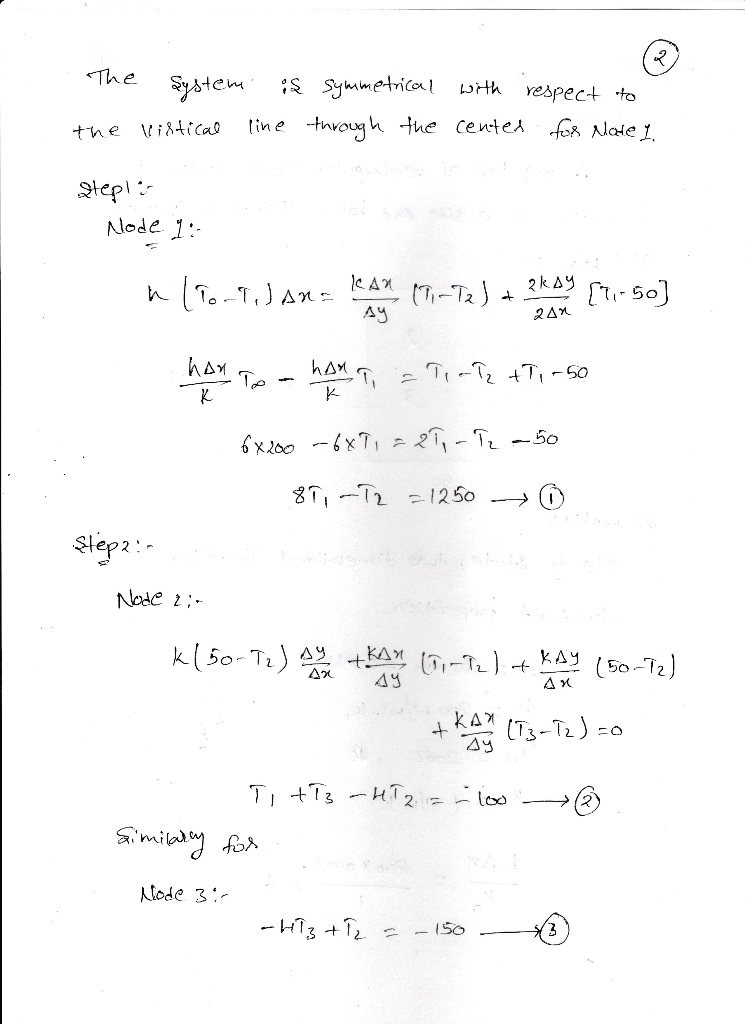 2
The System is symmetrical with respect to
the vistical line through the center for Node 1.
Step1:-
Node 1:-
h (T₀-T₁) Δx = kΔx/Δy (T₁-T₂) + 2kΔy/2Δx [T₁-50]
hΔx/K T∞ - hΔx/K T₁ = T₁-T₂ +T₁-50
6x200 -6xT₁ = 2T₁-T₂ -50
8T₁ -T₂ =1250 → ①
Step2:-
Node 2:-
k(50-T₂) Δy/Δx + KΔx/Δy (T₁-T₂) + KΔy/Δx (50-T₂)
+ KΔx/Δy (T₃-T₂) =0
T₁ +T₃ -4T₂ = -100 → ②
Similarly for
Node 3:-
-4T₃ +T₂ = -150 → ③